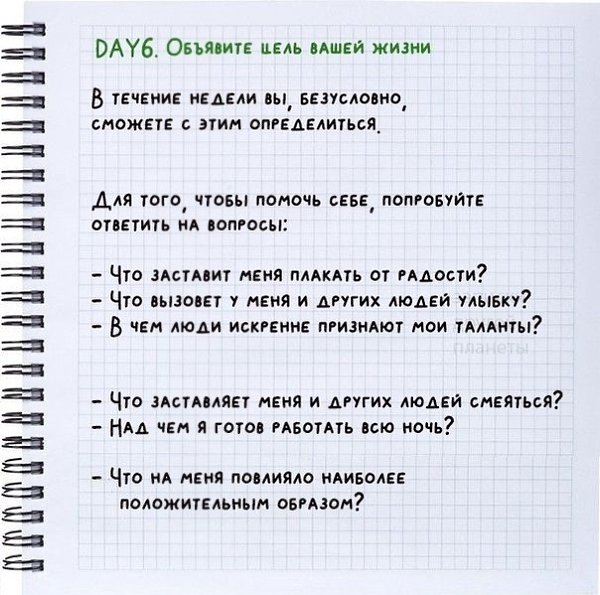 DAY6. Объявите цель вашей жизни
В течение недели вы, безусловно,
сможете с этим определиться.
Для того, чтобы помочь себе, попробуйте
ответить на вопросы:
– Что заставит меня плакать от радости?
– Что вызовет у меня и других людей улыбку?
– В чем люди искренне признают мои таланты?
планеты
– Что заставляет меня и других людей смеяться?
– Над чем я готов работать всю ночь?
– Что на меня повлияло наиболее
положительным образом?